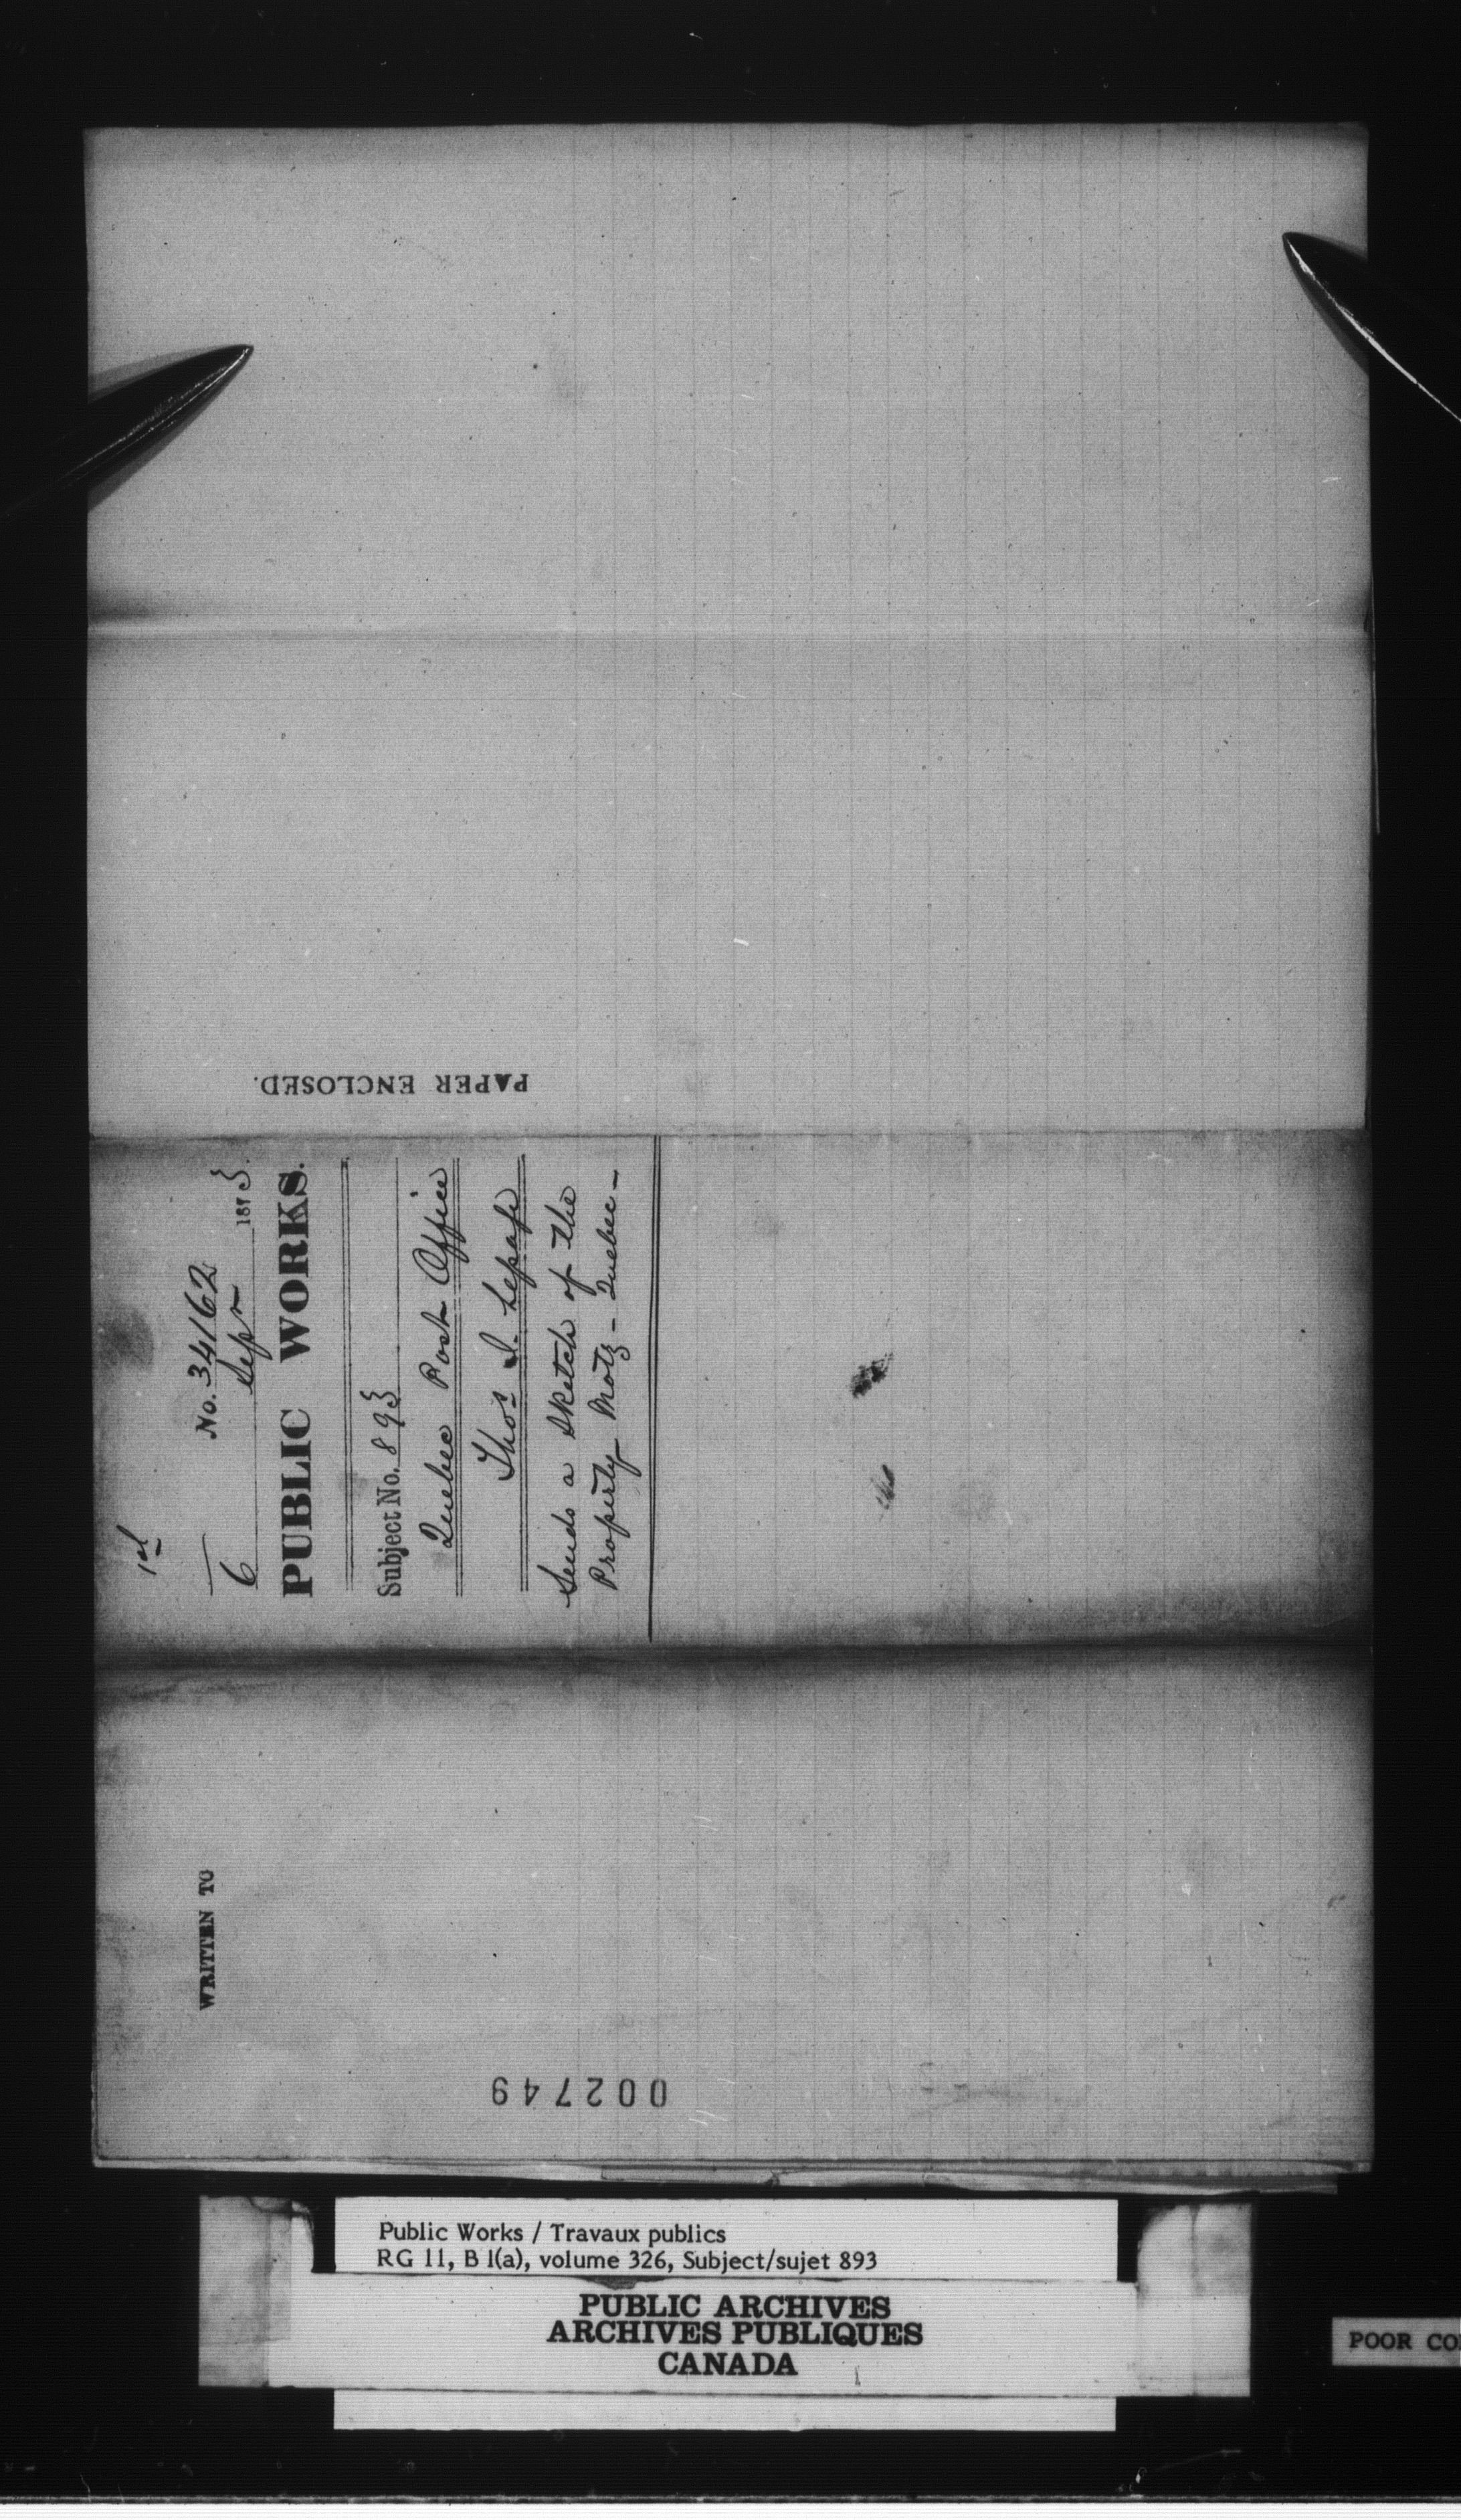 PAPER ENCLOSED.
1st
No. 34162
6 Sepr 1873.
PUBLIC WORKS.
Subject No. 893
Quebec Post Office
Thos S. Lepage
Sends a sketch of the
Property Motz - Quebec -
WRITTEN TO
002749
Public Works / Travaux publics
RG 11, B 1(a), volume 326, Subject/sujet 893
PUBLIC ARCHIVES
ARCHIVES PUBLIQUES
CANADA
POOR CO